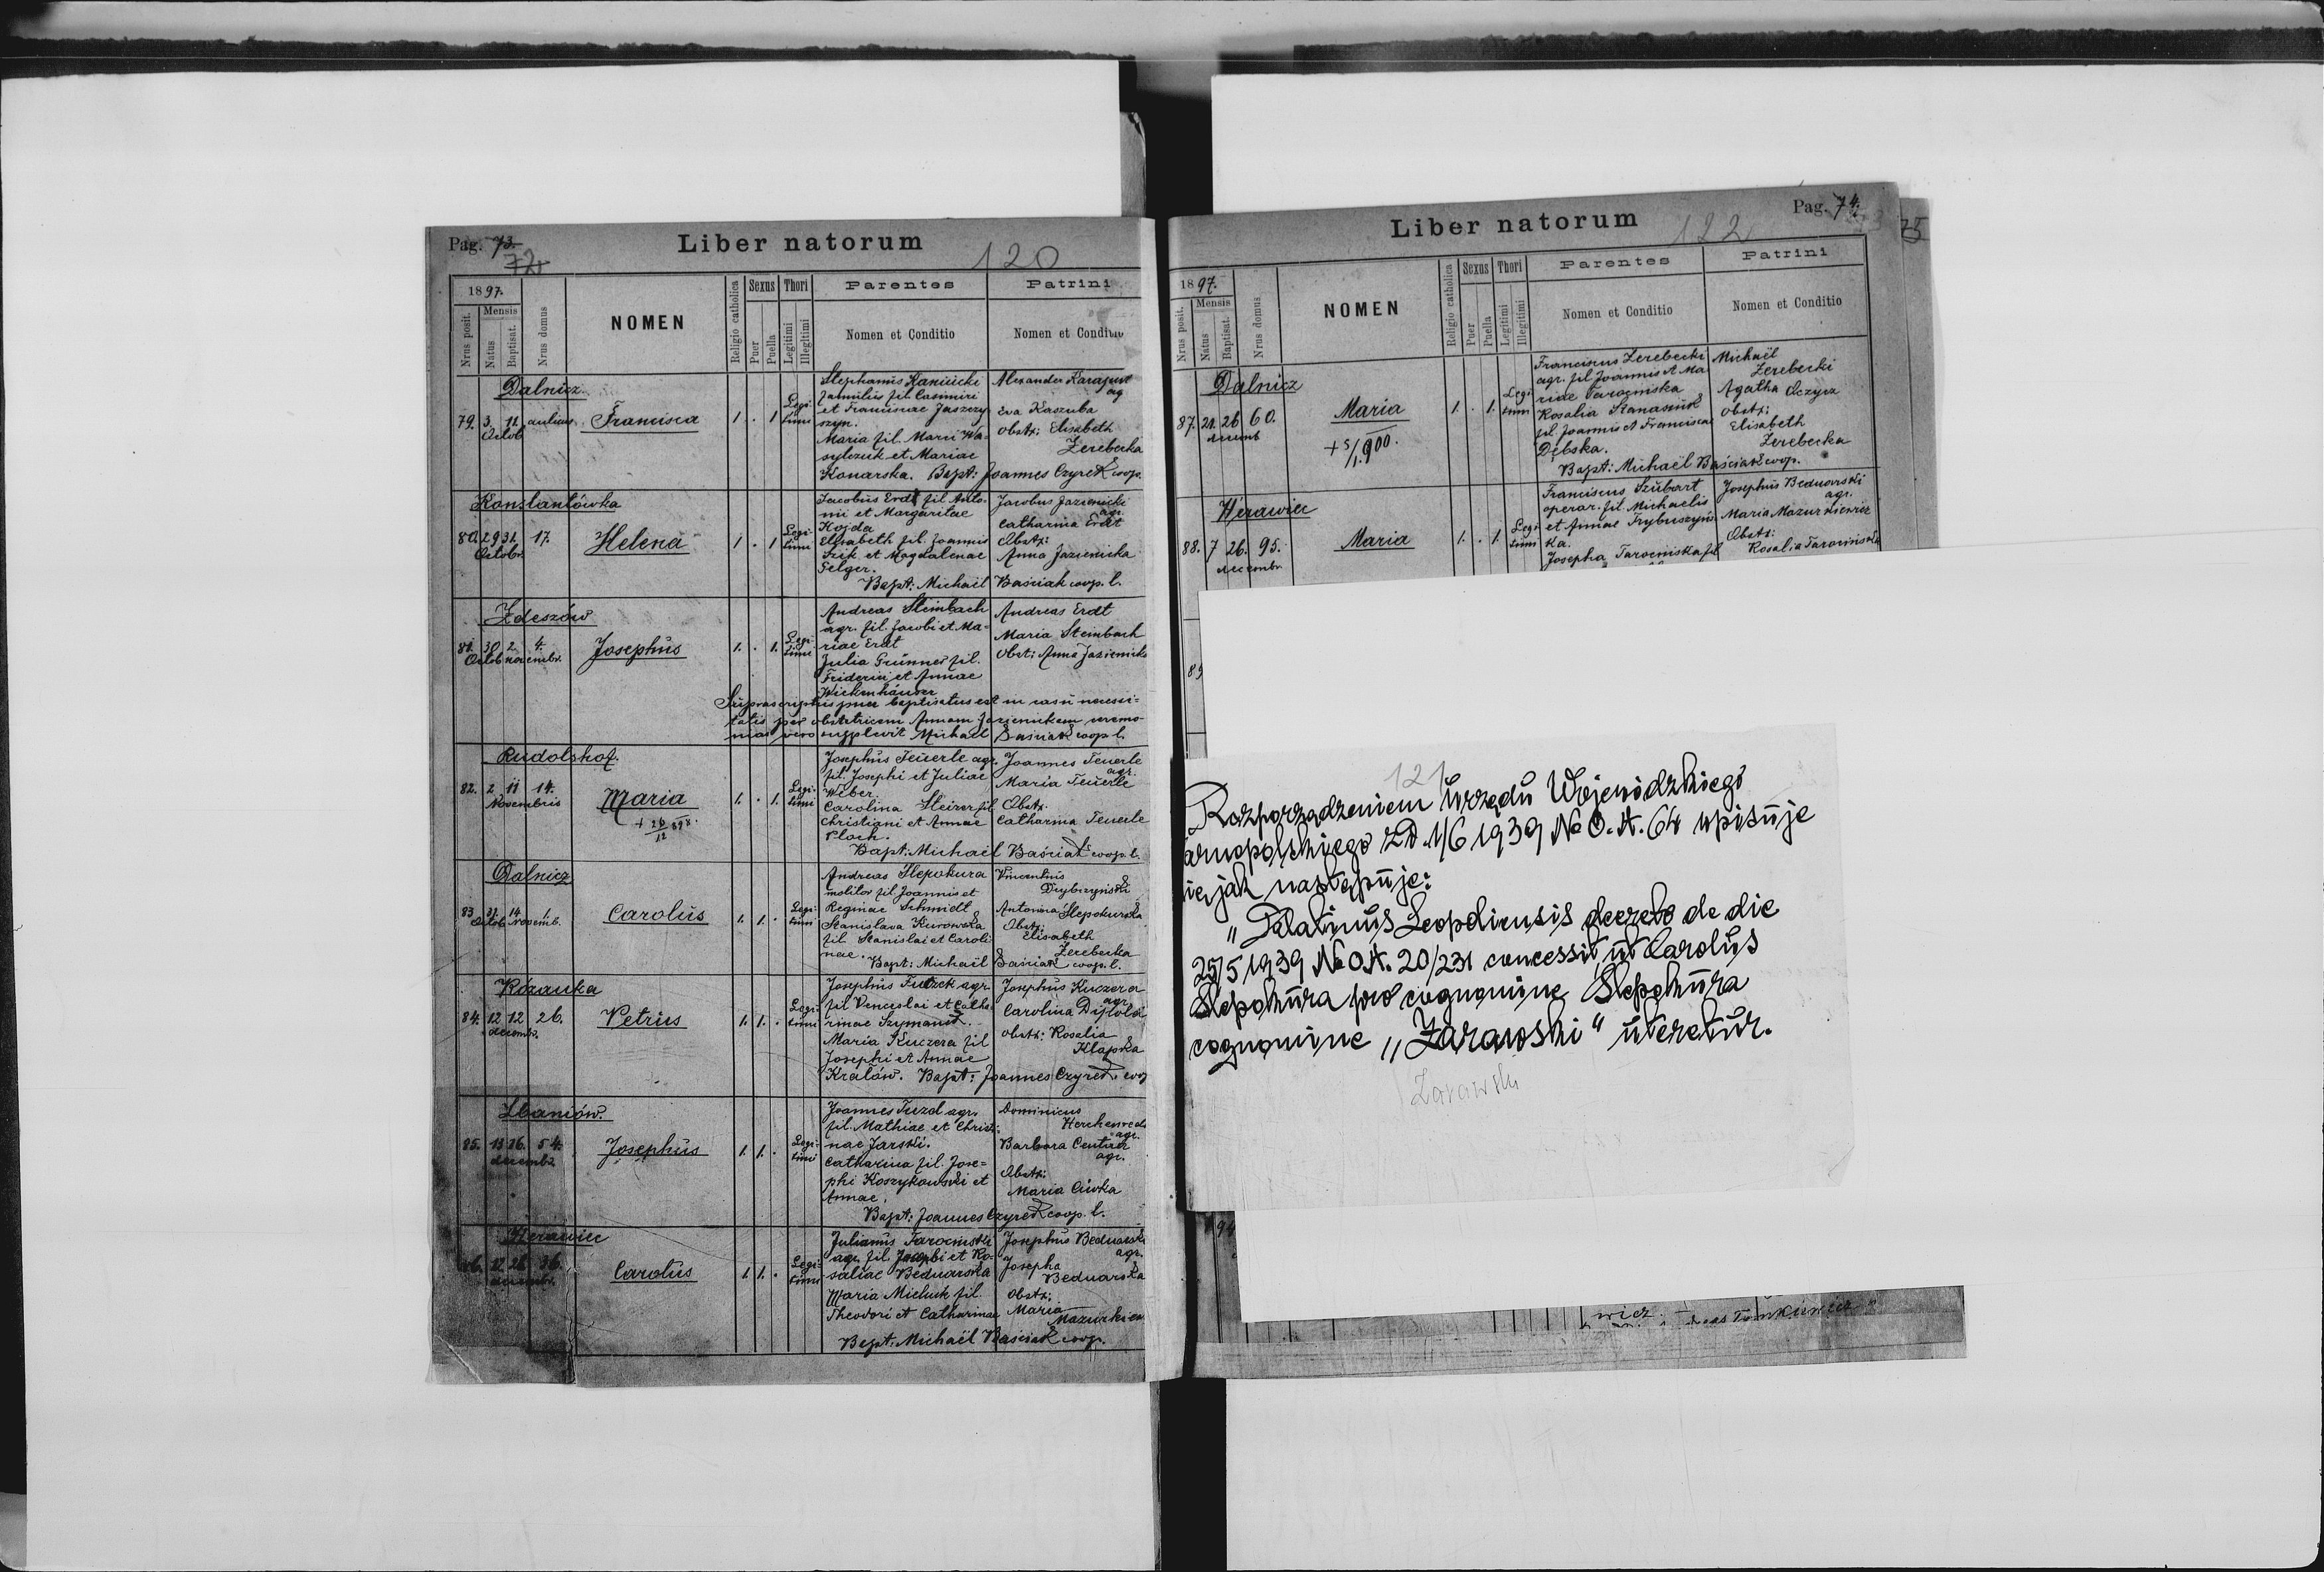 Pag. 73.
72
Liber natorum
120
1897.
Nrus posit.
Mensis
Natus
Baptisat.
Nrus domus
NOMEN
Religio catholica
Sexus
Puer
Puella
Thori
Legitimi
Illegitimi
Parentes
Nomen et Conditio
Patrini
Nomen et Conditio
Dalnicz
79. 3. 11.
Octob
Francisca
1 . 1
Legi-
timi
Stephanus Kanicicki
famulus fil. Casimiri
et Franciscae Jaszczy
szyn.
Maria fil. Marci Wa-
sylczuk et Mariae
Konarska. Bapt: Joannes Czyrek coop.
Alexander
ag
Eva Kaszuba
Obstx: Elisabeth
Zerebecka
Konstantówka
80. 29 31. 17.
Octobr.
Helena
1 . 1
Legi-
timi
Jacobus Erdt fil. Anto-
nii et Margaritae
Kojda
Elisabeth fil. Joannis
Szik et Magdalenae
Selger.
Bapt: Michaël Baściak coop. l.
Jacobus Jazienicki
agr.
Catharina Erdt
Obstx:
Anna Jazienicka
Zdeszów
81. 30 2. 4.
Octob novembr.
Josephus
1. . 1.
Legi-
timi
Andreas Steinbach
agr. fil. Jacobi et Ma-
riae Erdt
Julia Grünner fil.
Friderici et Annae
Wickenhäuser
Andreas Erdt
Maria Steinbach
Obst: Anna Jazienicka
Suprascriptus puer baptisatus est in casu necessi-
tatis per obstetricem Annam Jazienickam ceremo-
nias vero supplevit Michaël Baściak coop l.
Rudolshof.
82. 2 11 14.
Novembris
Maria
+ 26/12 898.
1. . 1.
Legi-
timi
Josephus Feuerle agr.
fil. Josephi et Juliae
Weber.
Carolina Steirer fil
Christiani et Annae
Ploch.
Bapt: Michaël Baściak coop. l.
Joannes Feuerle
agr.
Maria Feuerle
Obstx.
Catharina Feuerle
Dalnicz
83 31. 14. 1.
Octob. Novemb.
Carolus
1. 1. .
Legi-
timi
Andreas Slepokura
molitor fil Joannis et
Reginae Schmidt
Stanislava Kurowska
fil Stanislai et Caroli
nae.
Bapt: Michaël Baściak coop. l.
Vincentius
Antonina Slepokurska
Obstx:
Elisabeth
Zerebecka
Rózanka
84. 12 12. 26.
decemb.
Petrus
1. 1. .
Legi-
timi
Josephus Futzek agr
fil Venceslai et Catha
rinae Szymanik.
Maria Kuczera fil
Josephi et Annae
Kralów. Bapt: Joannes Czyrek coop
Josephus Kuczera
agr.
Carolina
Obstx: Rosalia
Klapska
Zbaniów.
85. 13 26. 54.
decemb.
Josephus
1. 1. .
Legi-
timi
Joannes Tuzd agr.
fil. Mathiae et Christi-
nae Jarski.
Catharina fil. Jose-
phi Koszykowski et
Annae.
Bapt: Joannes Czyrek coop. l.
Dominicus
agr.
Barbara Centner
agr.
Obstx:
Maria Ciwka
Wérawiec
86. 12 26 36.
decembr.
Carolus
1. 1. .
Legi-
timi
Julianus Tarocinski
agr. fil. Josephi et Ro-
saliae Bednarska
Maria Mielnik fil.
Theodori et Catharinae
Bapt. Michaël Baściak coop.
Josephus Bednarski
agr.
Josepha
Bednarska
Obstx:
Maria
Mazurkiew
Liber natorum
122
Pag. 74.
75
1897.
Nrus posit.
Mensis
Natus
Baptisat.
Nrus domus
NOMEN
Religio catholica
Sexus
Puer
Puella
Thori
Legitimi
Illegitimi
Parentes
Nomen et Conditio
Patrini
Nomen et Conditio
Dalnicz
87. 21. 26 60.
decemb
Maria
+ 5/1. 900.
1. . 1.
Legi-
timi
Franciscus Zerebecki
agr. fil Joannis et Ma
riae Tarocinska
Rosalia Stanasiuk
fil. Joannis et Franciscae
Dębska.
Bapt: Michaël Baściak coop.
Michaël
Zerebecki
Agatha Aczyrz
Obstx:
Elisabeth
Zerebecka
Wérawiec
88. 7 26. 95.
decembr.
Maria
1. . 1.
Legi-
timi
Franciscus Szubart
operar. fil. Michaelis
et Annae Trybuszyńs
ka.
Josepha Tarocinska fil
Josephus Bednarski
agr.
Maria Mazurkiewicz
Obstx:
Rosalia Tarocinska
89
121
Rozporządzeniem Urzędu Wojewódzkiego
arnopolskiego z d. 1/6 1939 No O.A. 64 wpisuje
ię jak następuje:
„Palatinus Leopoliensis decreto de die
25/5 1939 No O.A. 20/231 concessit, ut Carolus
Slepokura pro cognomine Slepokura
cognomine „Żarawski“ uteretur.
Żarawski
94
wicz.
Tomkiewicz